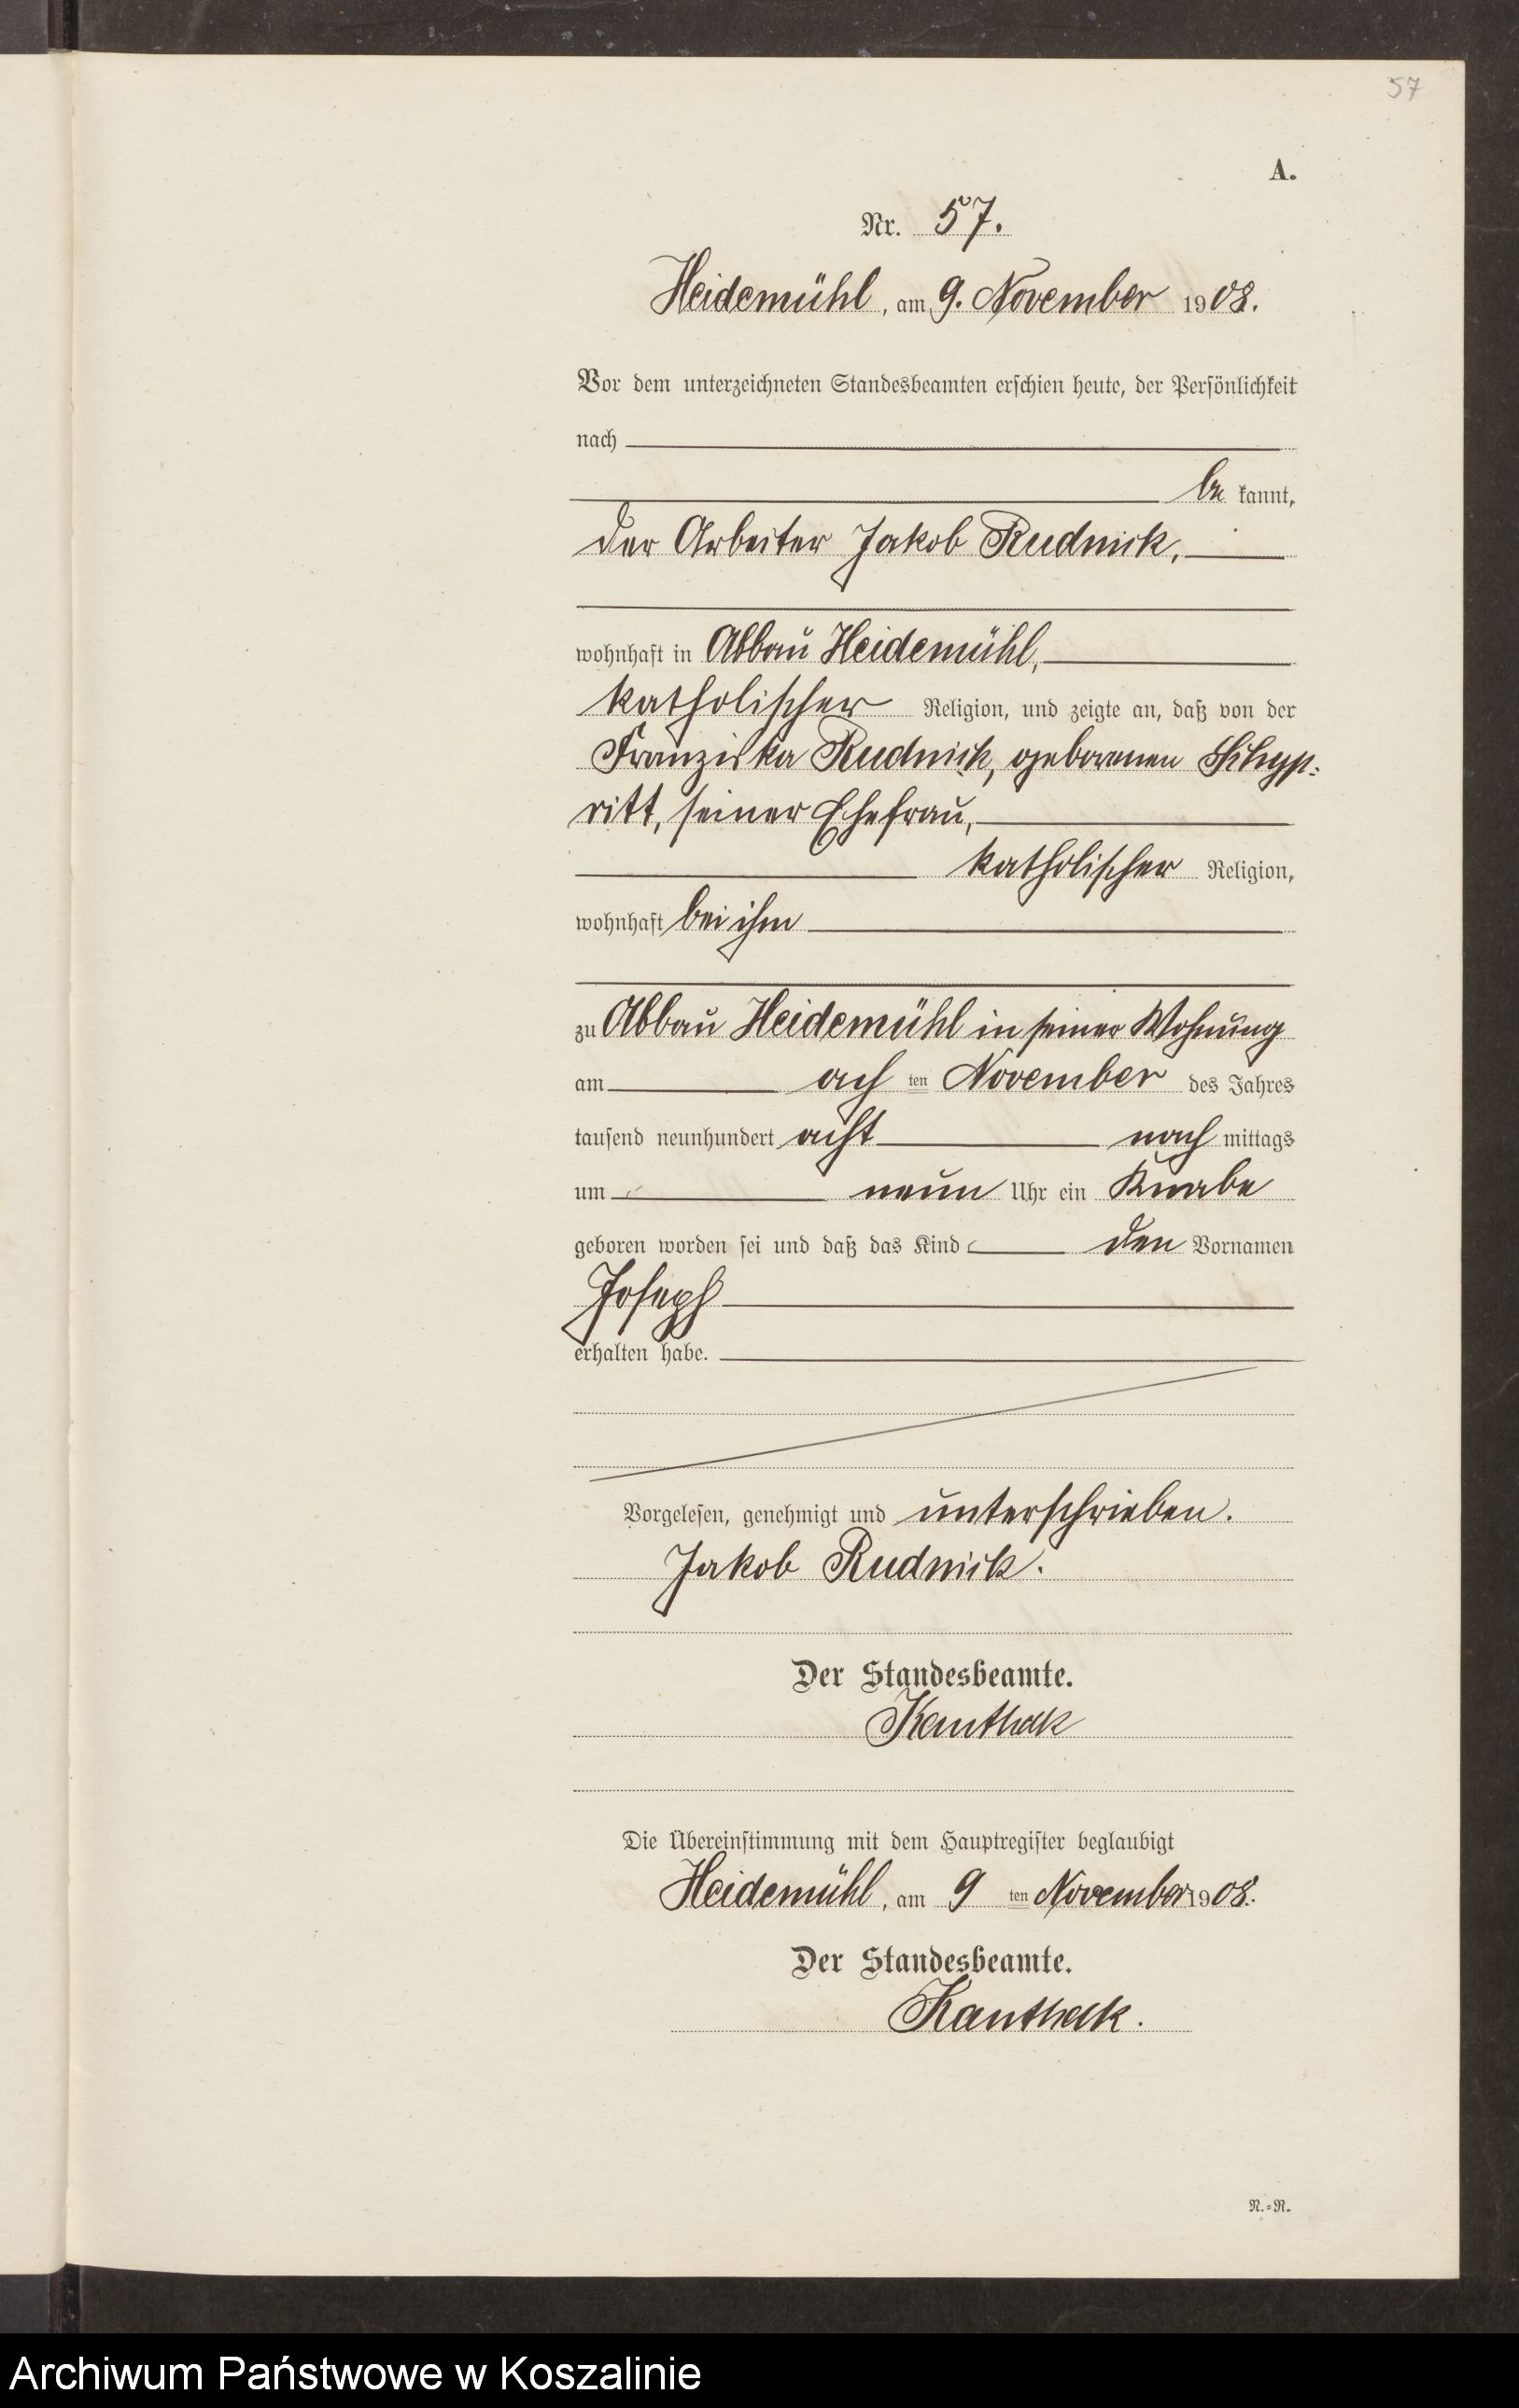 57
A.
Nr. 57.
Heidemühl, am 9. November 1908.
Vor dem unterzeichneten Standesbeamten erschien heute, der Persönlichkeit
nach
be kannt,
der Arbeiter Jakob Rudnick,
wohnhaft in Abbau Heidemühl,
katholischer Religion, und zeigte an, daß von der
Franziska Rudnick, geborenen
ritt, seiner Ehefrau,
katholischer Religion,
wohnhaft bei ihm
zu Abbau Heidemühl in seiner Wohnung
am ach ten November des Jahres
tausend neunhundert acht nach mittags
um neun Uhr ein Knabe
geboren worden sei und daß das Kind den Vornamen
Joseph
erhalten habe.
Vorgelesen, genehmigt und unterschrieben.
Jakob Rudnick.
Der Standesbeamte.
Kanthak
Die Übereinstimmung mit dem Hauptregister beglaubigt
Heidemühl, am 9 ten November 1908.
Der Standesbeamte.
Kanthak.
N.=R.
Archiwum Państwowe w Koszalinie